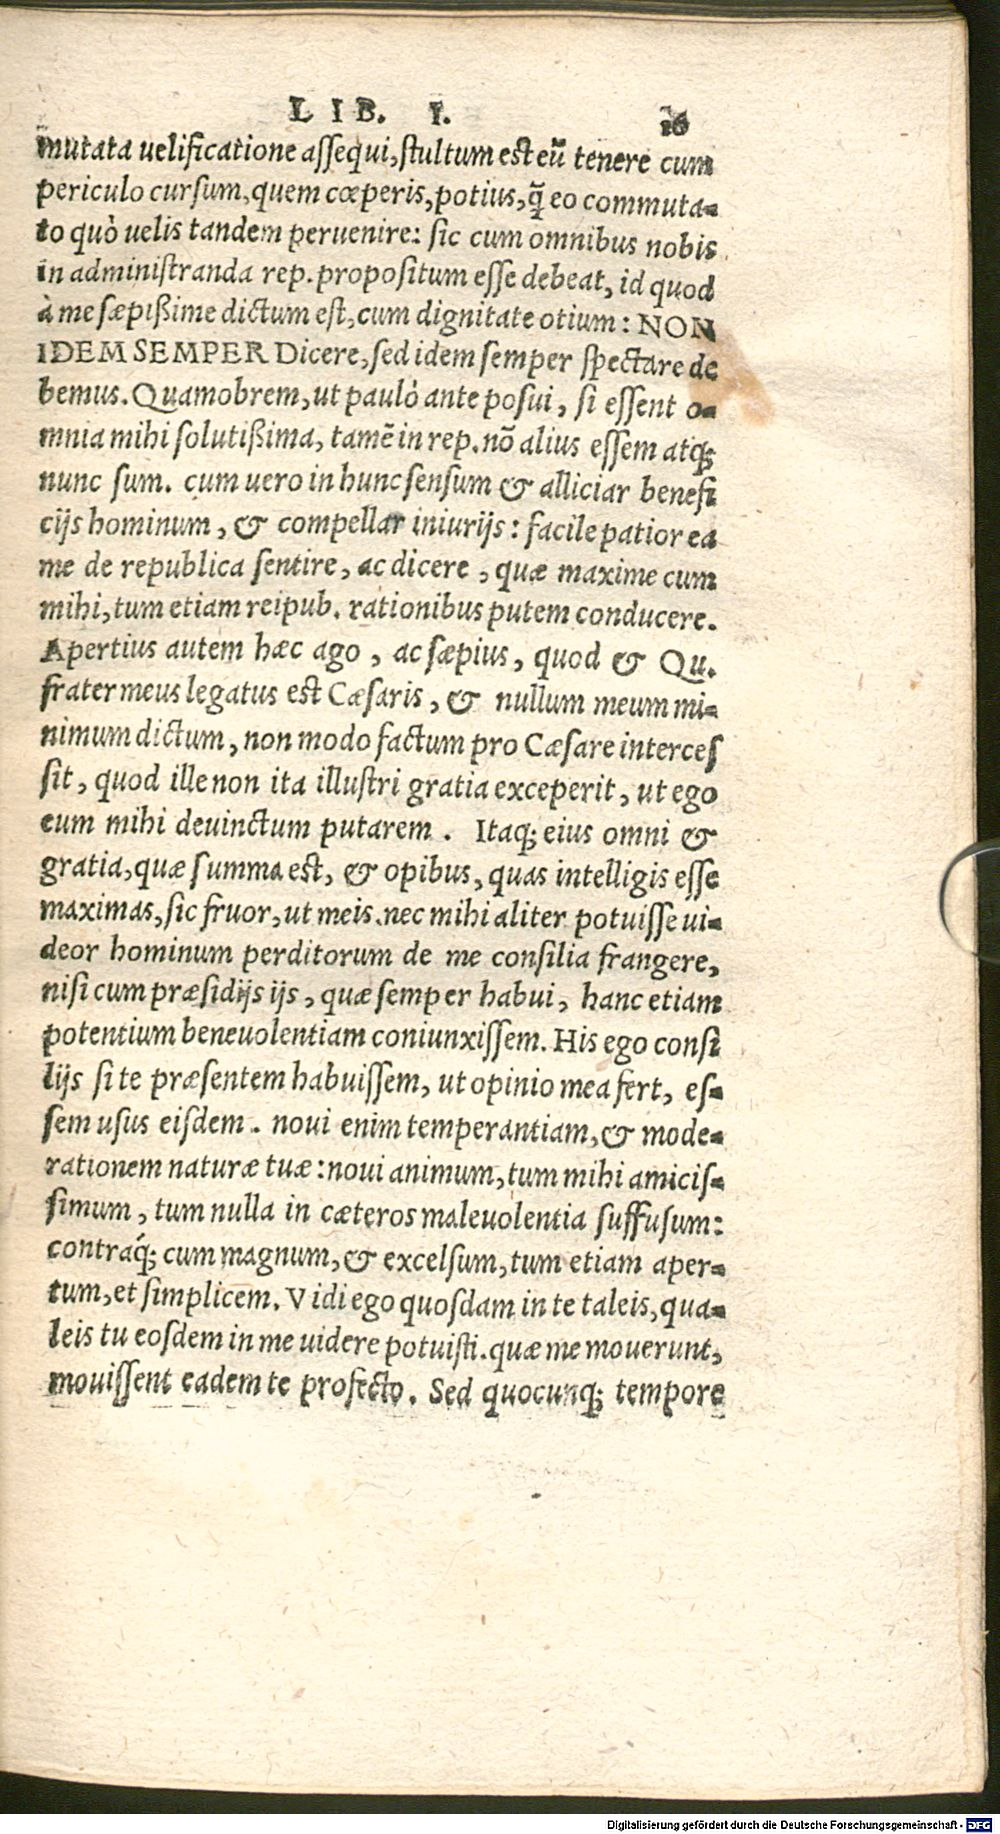 LIB. I. 16
mutata uelificatione assequi, stultum est eũ tenere cum
periculo cursum, quem cœperis, potius, q̃ eo commuta-
to quò uelis tandem peruenire: sic cum omnibus nobis
in administranda rep. propositum esse debeat, id quod
à me sæpißime dictum est, cum dignitate otium: NON
IDEM SEMPER Dicere, sed idem semper spectare de
bemus. Quamobrem, ut paulò ante posui, si essent o-
mnia mihi solutißima, tamẽ in rep. nõ alius essem atq;
nunc sum. cum uero in hunc sensum & alliciar benefi
cijs hominum, & compellar iniurijs: facile patior ea
me de republica sentire, ac dicere, quæ maxime cum
mihi, tum etiam reipub. rationibus putem conducere.
Apertius autem hæc ago, ac sæpius, quod & Qu.
frater meus legatus est Cæsaris, & nullum meum mi-
nimum dictum, non modo factum pro Cæsare interces
sit, quod ille non ita illustri gratia exceperit, ut ego
eum mihi deuinctum putarem. Itaq; eius omni &
gratia, quæ summa est, & opibus, quas intelligis esse
maximas, sic fruor, ut meis. nec mihi aliter potuisse ui-
deor hominum perditorum de me consilia frangere,
nisi cum præsidijs ijs, quæ semper habui, hanc etiam
potentium beneuolentiam coniunxissem. His ego consi
lijs si te præsentem habuissem, ut opinio mea fert, es-
sem usus eisdem. noui enim temperantiam, & mode-
rationem naturæ tuæ: noui animum, tum mihi amicis-
simum, tum nulla in cæteros maleuolentia suffusum:
contraq́; cum magnum, & excelsum, tum etiam aper-
tum, et simplicem. Vidi ego quosdam in te taleis, qua-
leis tu eosdem in me uidere potuisti. quæ me mouerunt,
mouissent eadem te profecto. Sed quocunq; tempore
Digitalisierung gefördert durch die Deutsche Forschungsgemeinschaft - DFG